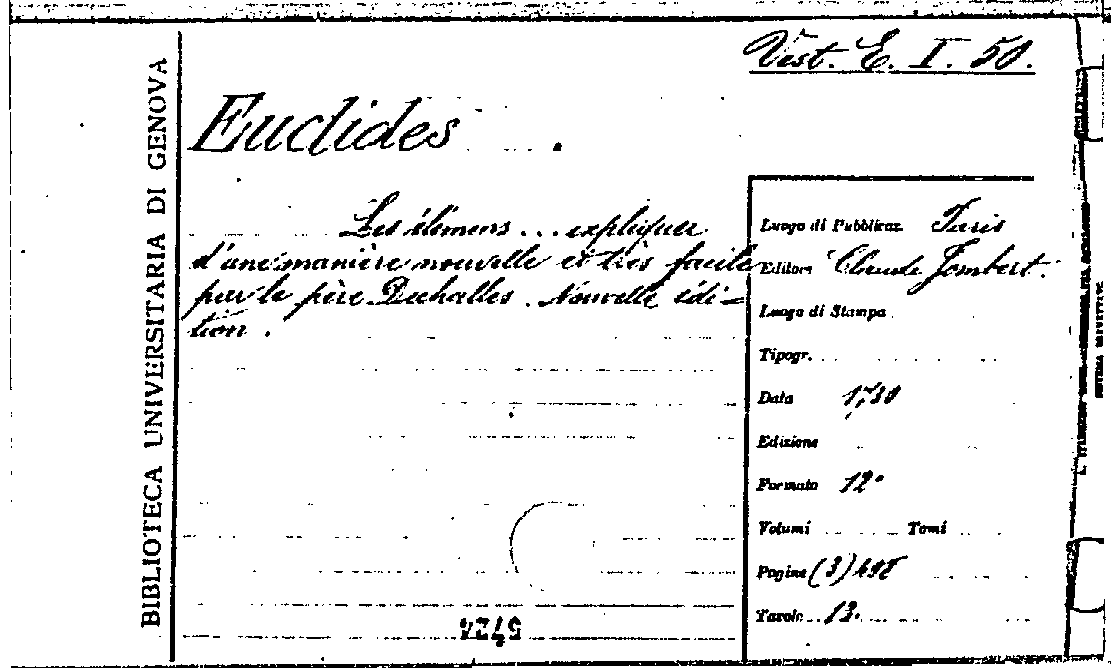 Vest. E. I. 50.
BIBLIOTECA UNIVERSITARIA DI GENOVA
Euclides
Les élémens ... expliquez
d'une manière nouvelle et très facile
par le père Dechalles. Nouvelle édi-
tion.
Luogo di Pubblicaz. Paris
Editore Claude Jombert.
Luogo di Stampa
Tipogr.
Data 1730
Edizione
Formato 12°
Volumi Tomi
Pagine (3) 498
Tavole 13.